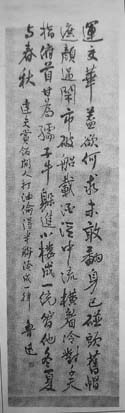 運交華蓋欲何求未敢翻身已碰頭舊帽
遮顔過鬧市破船載酒泛中流橫眉冷對千夫
指俯首甘為孺子牛躲進小樓成一統管他冬夏
与春秋 達夫賞飯閒人打油偷得半聯湊成一律 魯迅